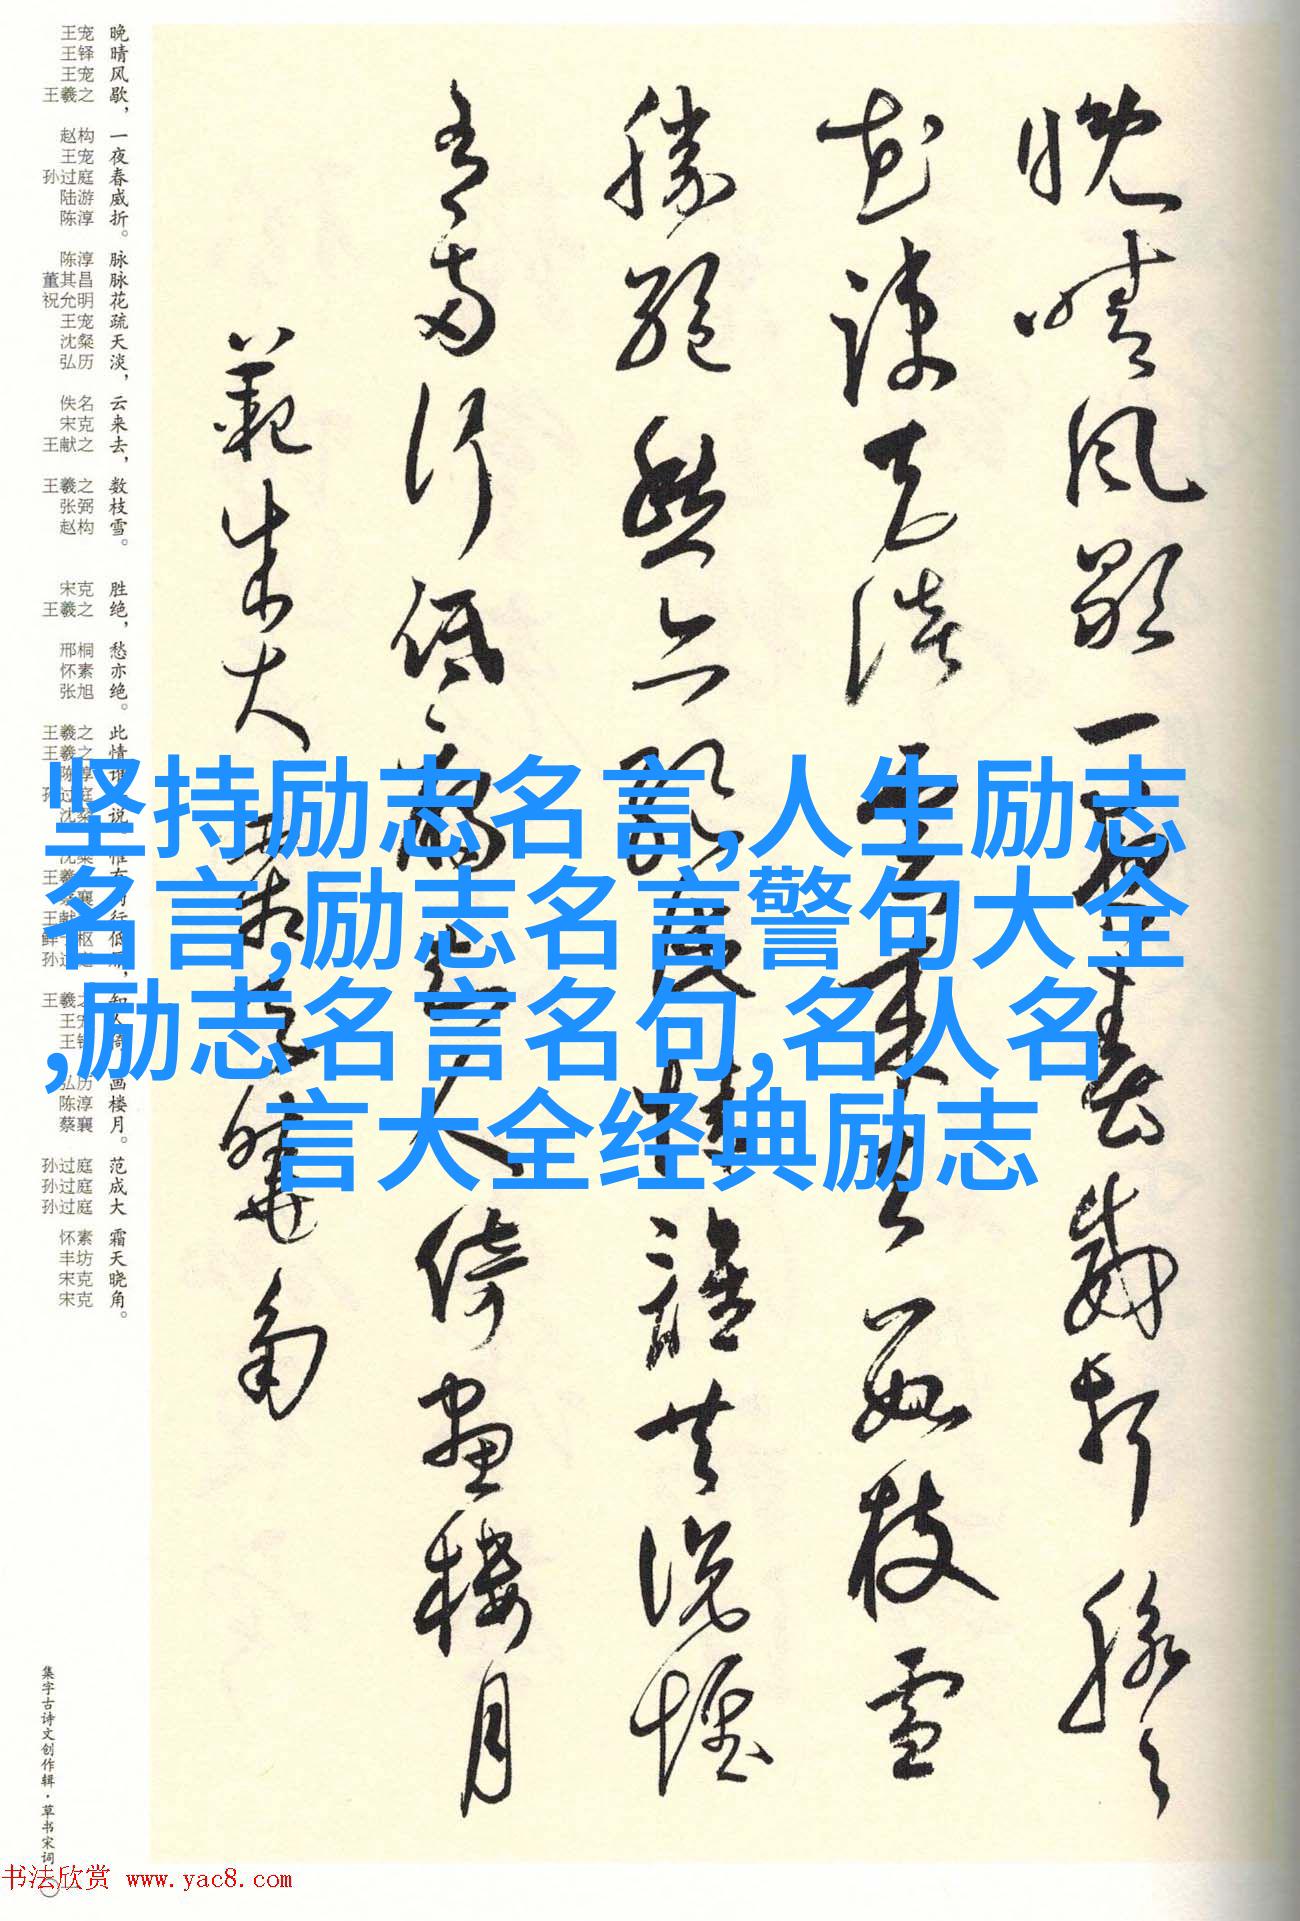 晚晴风歇，
一夜春威折。
脉脉花疏天淡，
云来去，
数枝雪。
胜绝，
愁亦绝。
此情
说
行
低
画楼月。
范成大
霜天晓角。
王宠
王铎
王宠
王羲之
赵构
王宠
孙过庭
陆游
陈淳
陈淳
董其昌
祝允明
王宠
沈粲
弘历
佚名
宋克
王献之
王羲之
张弼
赵构
宋克
王羲之
邢桐
怀素
张旭
王羲之
王羲之
弘历
陈淳
蔡襄
孙过庭
孙过庭
孙过庭
怀素
丰坊
宋克
宋克
坚持励志名言,人生励志
名言,励志名言警句大全
,励志名言名句,名人名
言大全经典励志
集字古诗文创作辑·草书宋词
书法欣赏 www.yac8.com